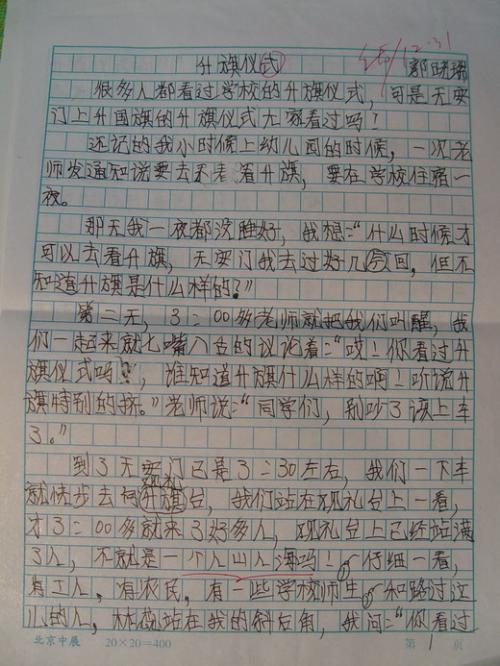 升旗仪式 郭晓瑞
12.31
很多人都看过学校的升旗仪式，可是天安
门上升国旗的升旗仪式大家看过吗？
还记的我小时候上幼儿园的时候，一次老
师发通知说要去看升旗，要在学校住宿一
夜。
那天我一夜都没睡好，我想：“什么时候才
可以去看升旗，天安门我去过好几回，但不
知道升旗是什么样的？”
第二天，3：00多老师就把我们叫醒，我
们一起来就七嘴八舌的议论着：“哎！你看过升
旗仪式吗？，谁知道升旗什么样的啊！听说升
旗特别的挤。”老师说：“同学们，别吵了该上车
了。”
到了天安门已是3：30左右，我们一下车
就快步去向升旗台，我们站在观礼台上一看，
才3：00多就来了好多人，观礼台上已经站满
了人，不就是一个人山人海吗！仔细一看，
有工人，有农民，有一些学校师生，和路过这
儿的人，林薇站在我的斜右角，我问：“你看过
北京中展 20×20=400 第1页